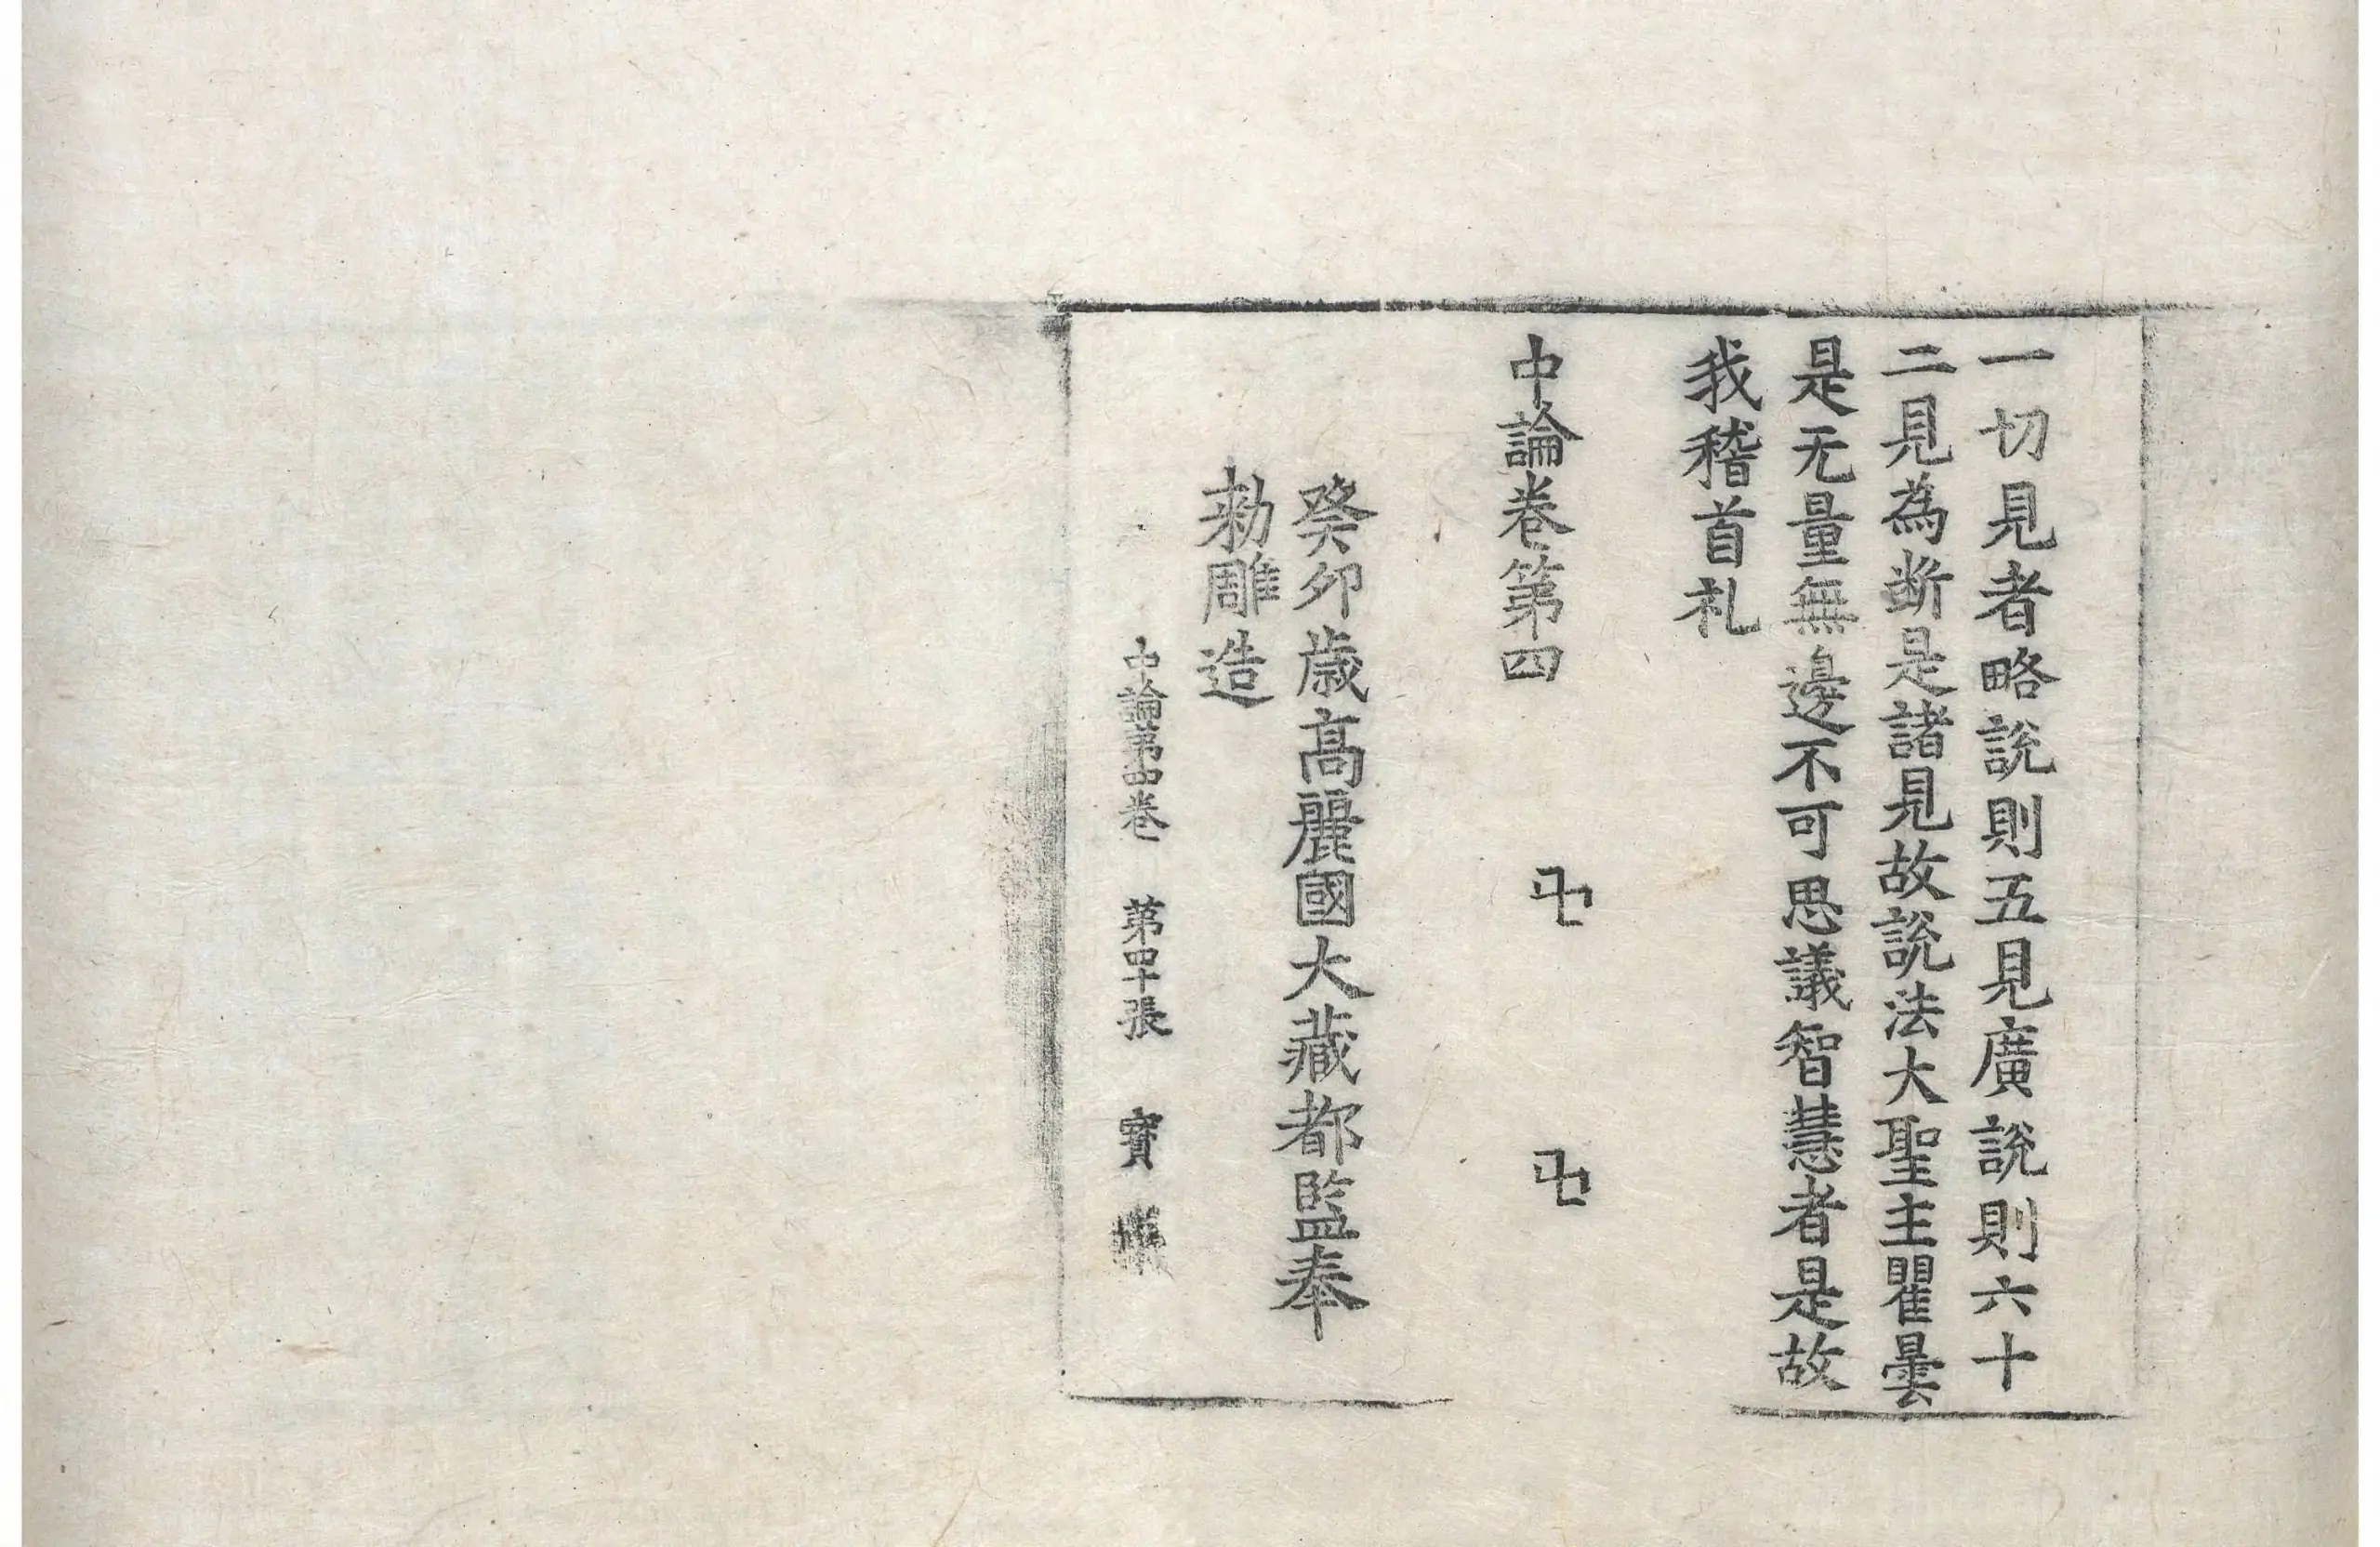 一切見者略說則五見廣說則六十
二見為斷是諸見故說法大聖主瞿曇
是无量無邊不可思議智慧者是故
我稽首礼
中論卷第四 卍 卍
癸卯歲高麗國大藏都監奉
勑雕造
中論第四卷 第四十張 寶